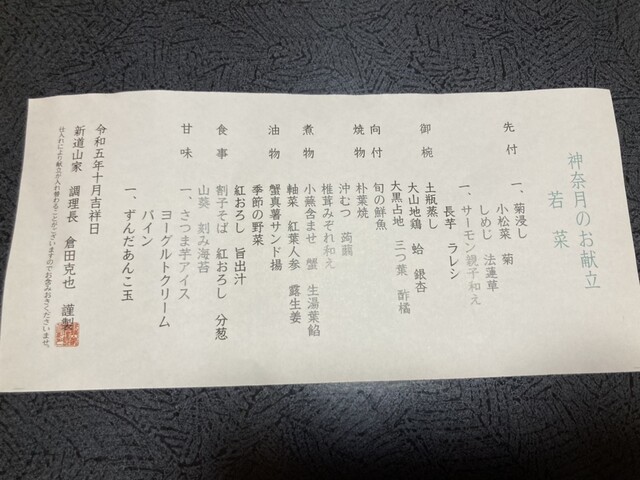 神奈月のお献立
若菜
先付
一、菊浸し
小松菜 菊
しめじ 法蓮草
一、サーモン親子和え
長芋 ラレシ
御椀
土瓶蒸し
大山地鶏 蛤 銀杏
大黒占地 三つ葉 酢橘
向付
旬の鮮魚
焼物
朴葉焼
沖むつ 蒟蒻
椎茸みぞれ和え
煮物
小蕪含ませ 蟹 生湯葉餡
軸菜 紅葉人参 露生姜
油物
蟹真薯サンド揚
季節の野菜
紅おろし 旨出汁
食事
割子そば 紅おろし 分葱
山葵 刻み海苔
甘味
一、さつま芋アイス
ヨーグルトクリーム
パイン
一、ずんだあんこ玉
令和五年十月吉祥日
新道山家 調理長 倉田克也 謹製
仕入れにより献立が入れ替わることがございますのでお含みおきくださいませ。